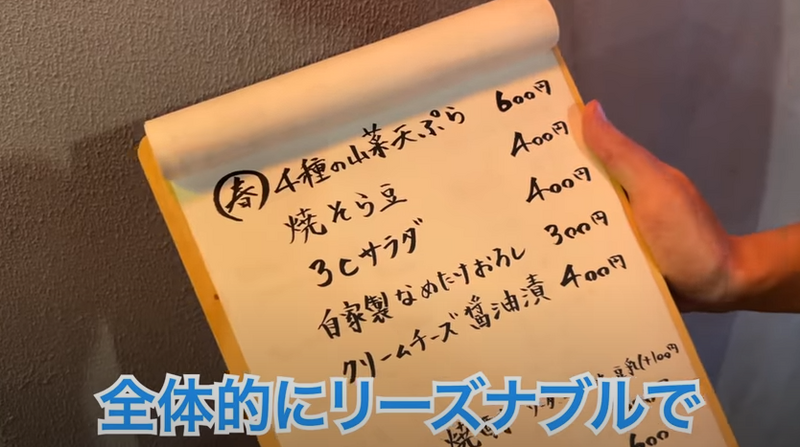 春 4種の山菜天ぷら 600円
焼そら豆 400円
3Cサラダ 400円
自家製なめたけおろし 300円
クリームチーズ醤油漬 400円
豆乳(+100円
焼
600
全体的にリーズナブルで